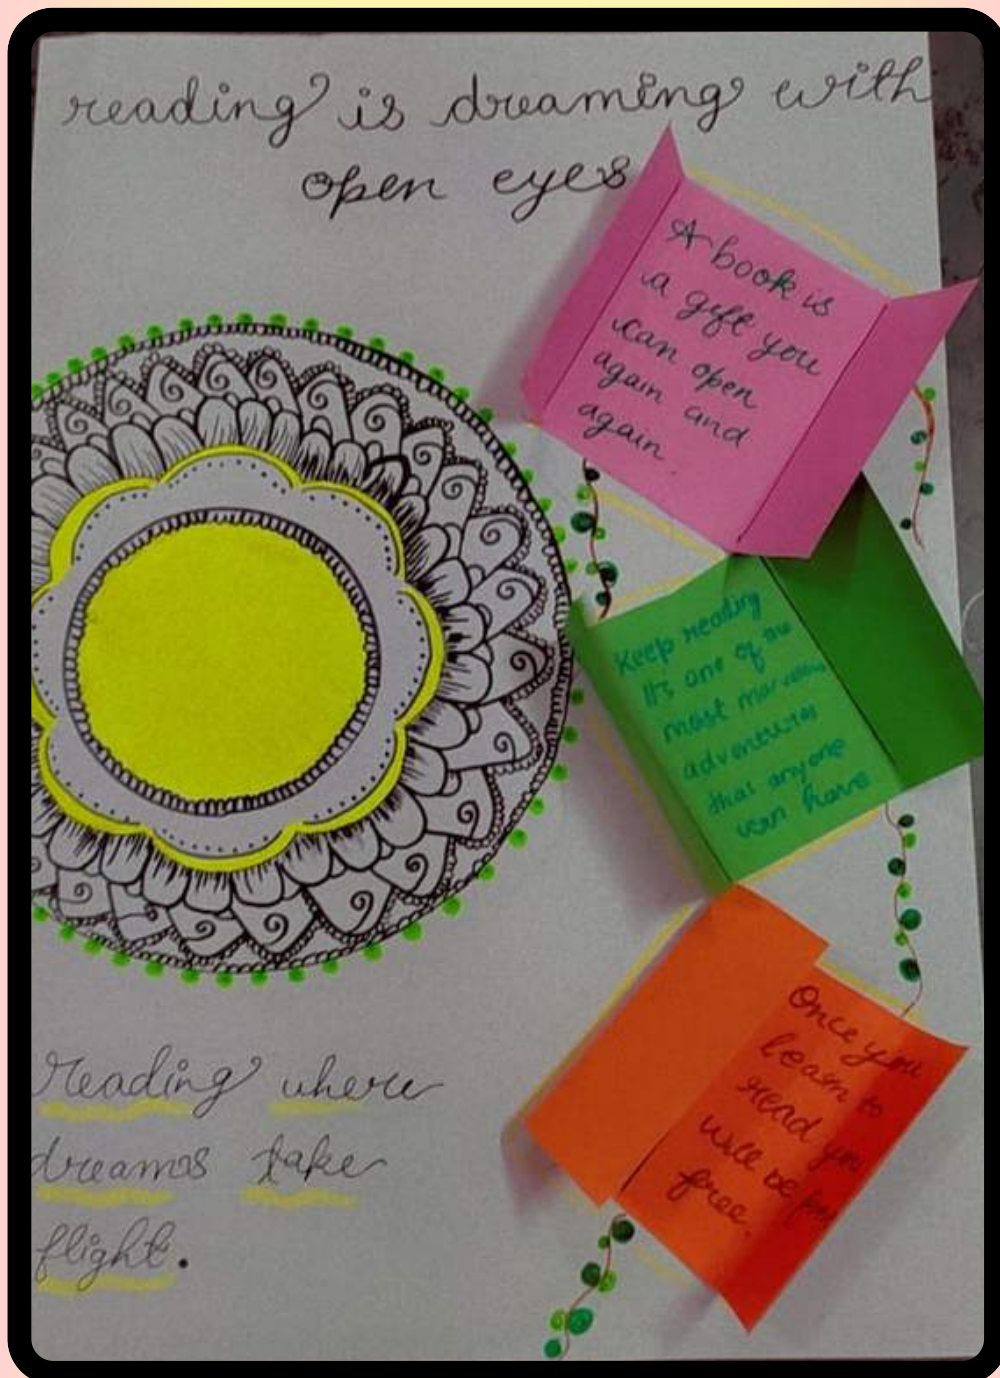 reading is dreaming with
open eyes
A book is
a gift you
can open
again and
again.
Keep reading
It's one of the
most marvelous
adventures
that anyone
can have
Once you
learn to
read you
will be
free.
reading where
dreams take
flight.